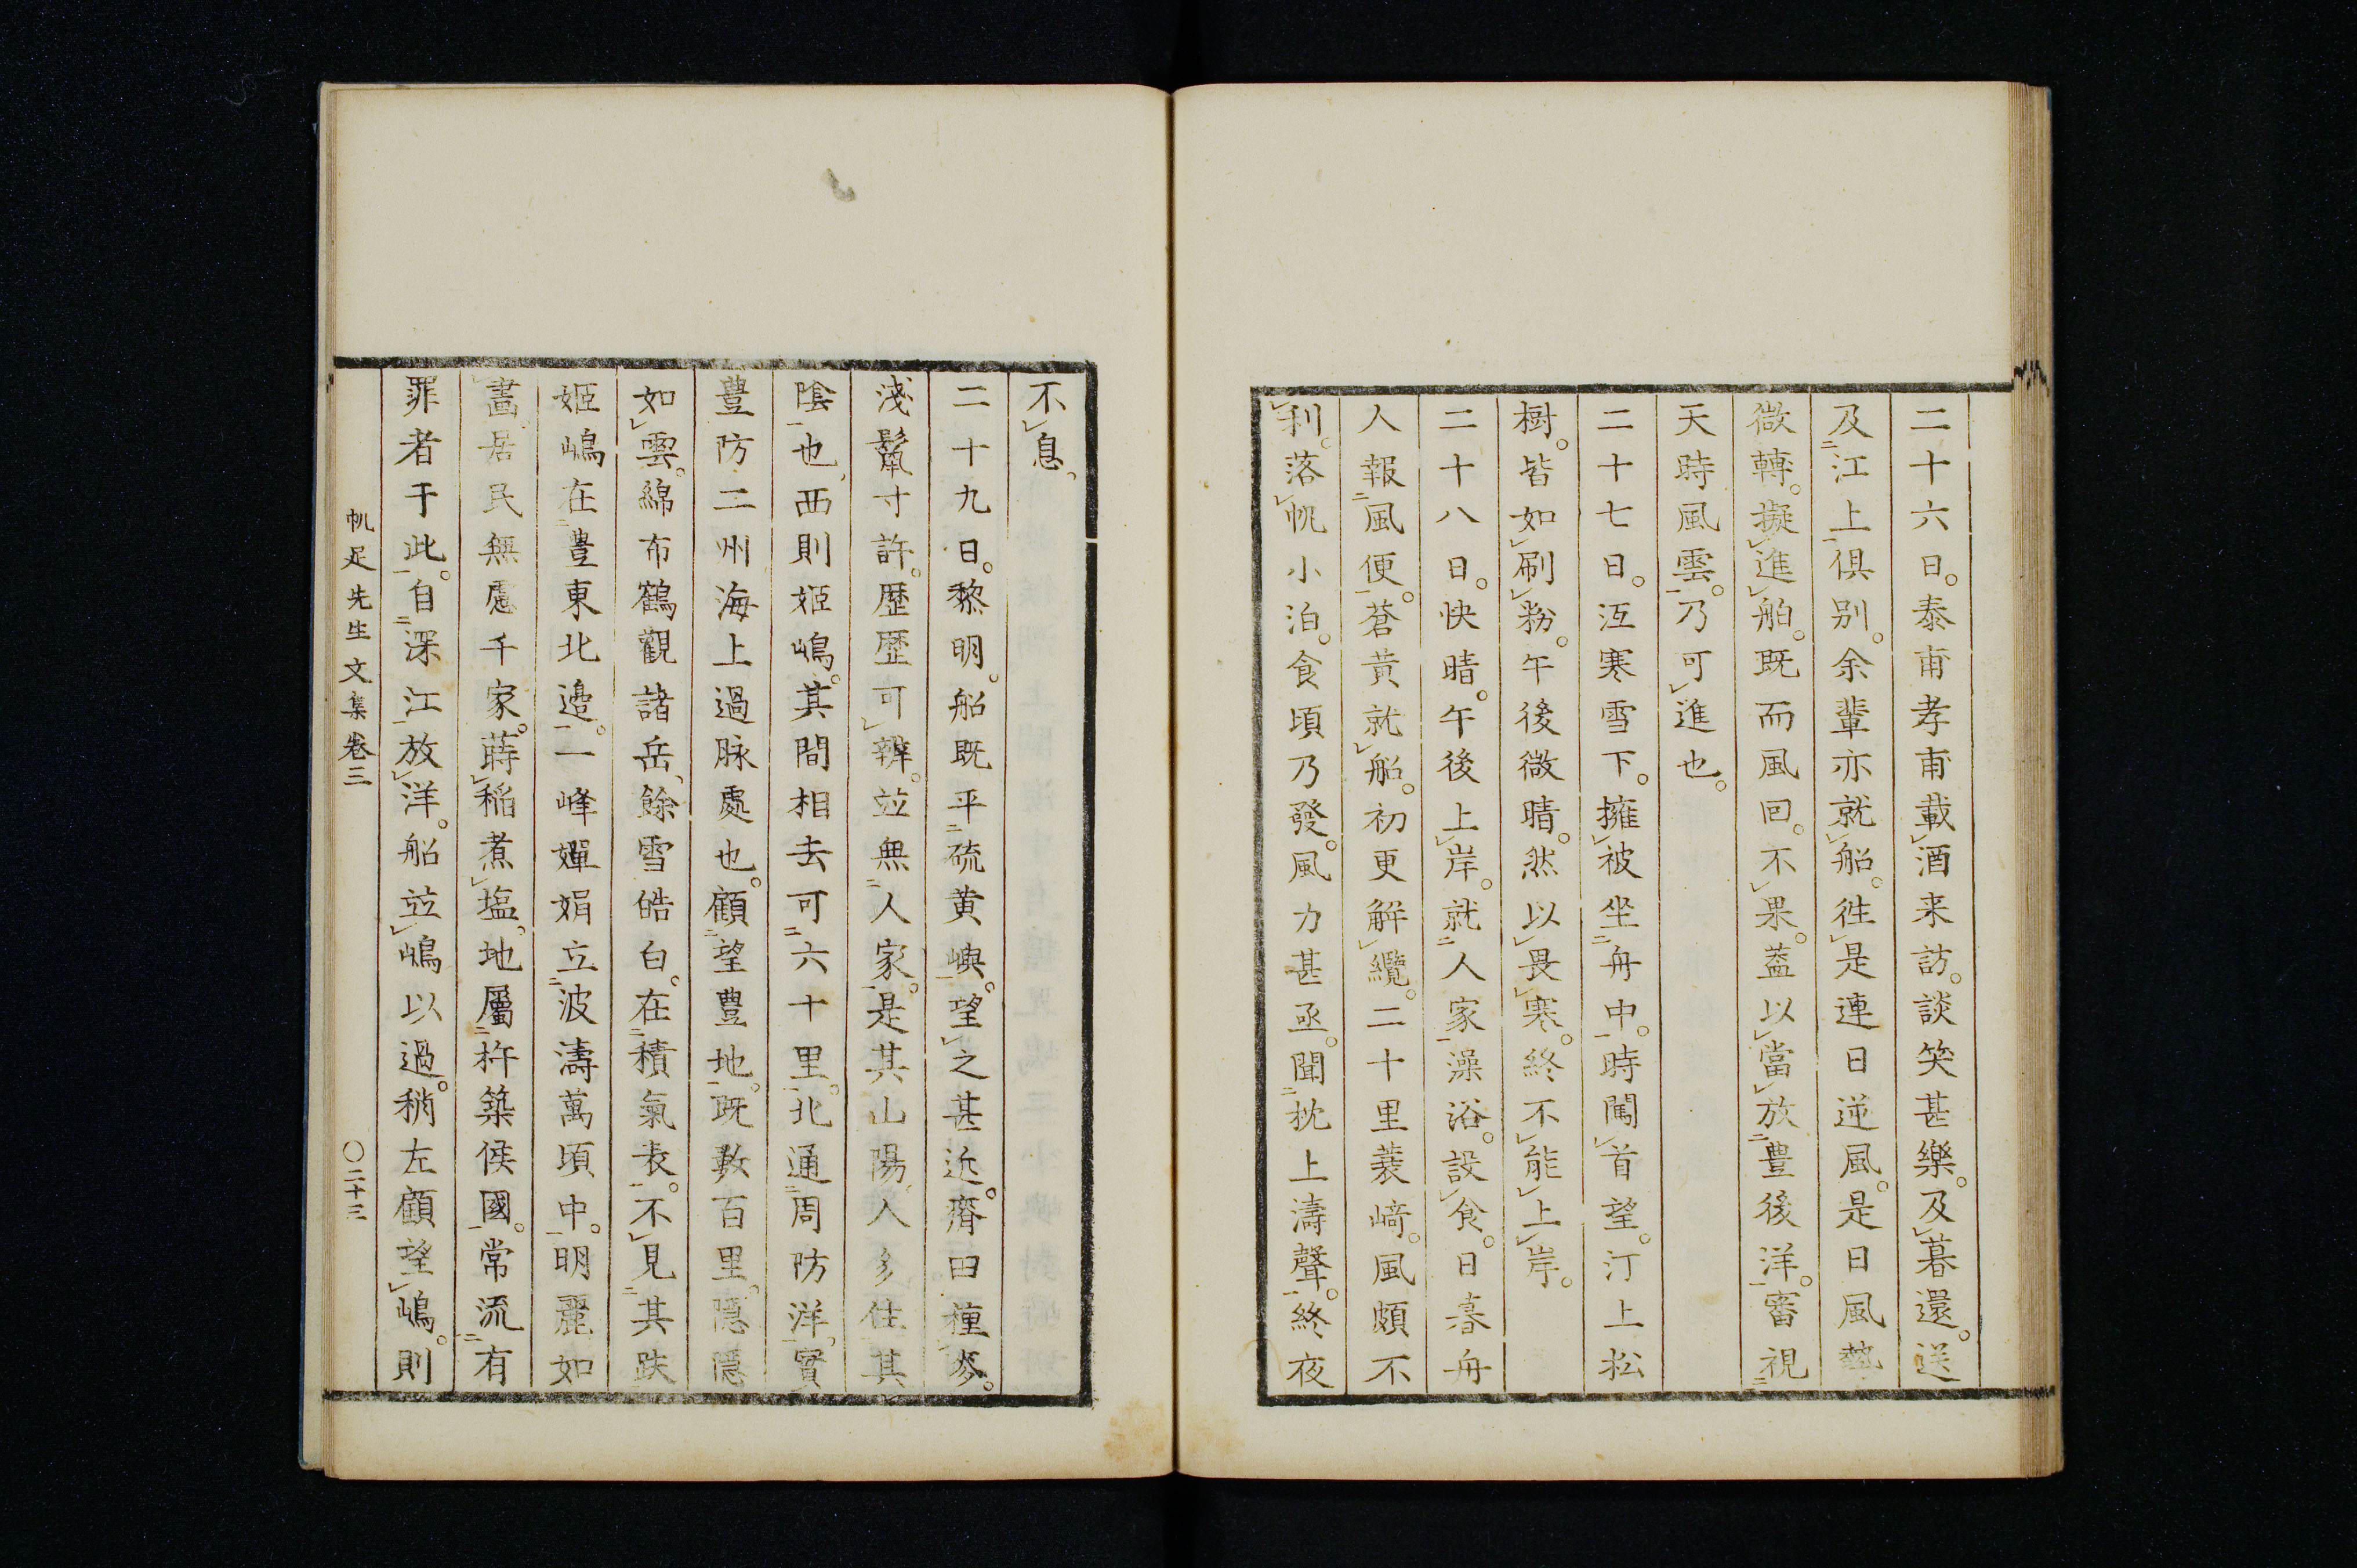 二十六日。泰甫孝甫載酒来訪。談笑甚樂。及暮還。送
及江上俱別。余輩亦就船。徃是連日逆風。是日風勢
微轉。擬進舶。既而風回。不果。蓋以當放豊後洋。審視
天時風雲。乃可進也。
二十七日。沍寒雪下。擁被坐舟中。時闖首望。汀上松
樹。皆如刷粉。午後微晴。然以畏寒。終不能上岸。
二十八日。快晴。午後上岸。就人家澡浴。設食。日暮舟
人報風便。蒼黄就船。初更解纜。二十里蓑﨑。風頗不
利。落帆小泊。食頃乃發。風力甚亟。聞枕上濤聲。終夜
不息。
二十九日。黎明。船既平硫黄嶼。望之甚近。磳田種麥。
淺鬣寸許。歴歴可辨。竝無人家。是其山陽人多住其
陰也。西則姫嶋。其間相去可六十里。北通周防洋。實
豊防二州海上過脉處也。顧望豊地。既數百里。隠隠
如雲。綿布鶴觀諸岳、餘雪皓白。在積氣表。不見其趺
姫嶋在豊東北邉。一峰嬋娟立波濤萬頃中。明麗如
畫。居民無慮千家。蒔稲煮塩。地屬杵築侯國。常流有
罪者于此。自深江放洋。船竝嶋以過。稍左顧望嶋。則
帆足先生文集巻三
〇二十三